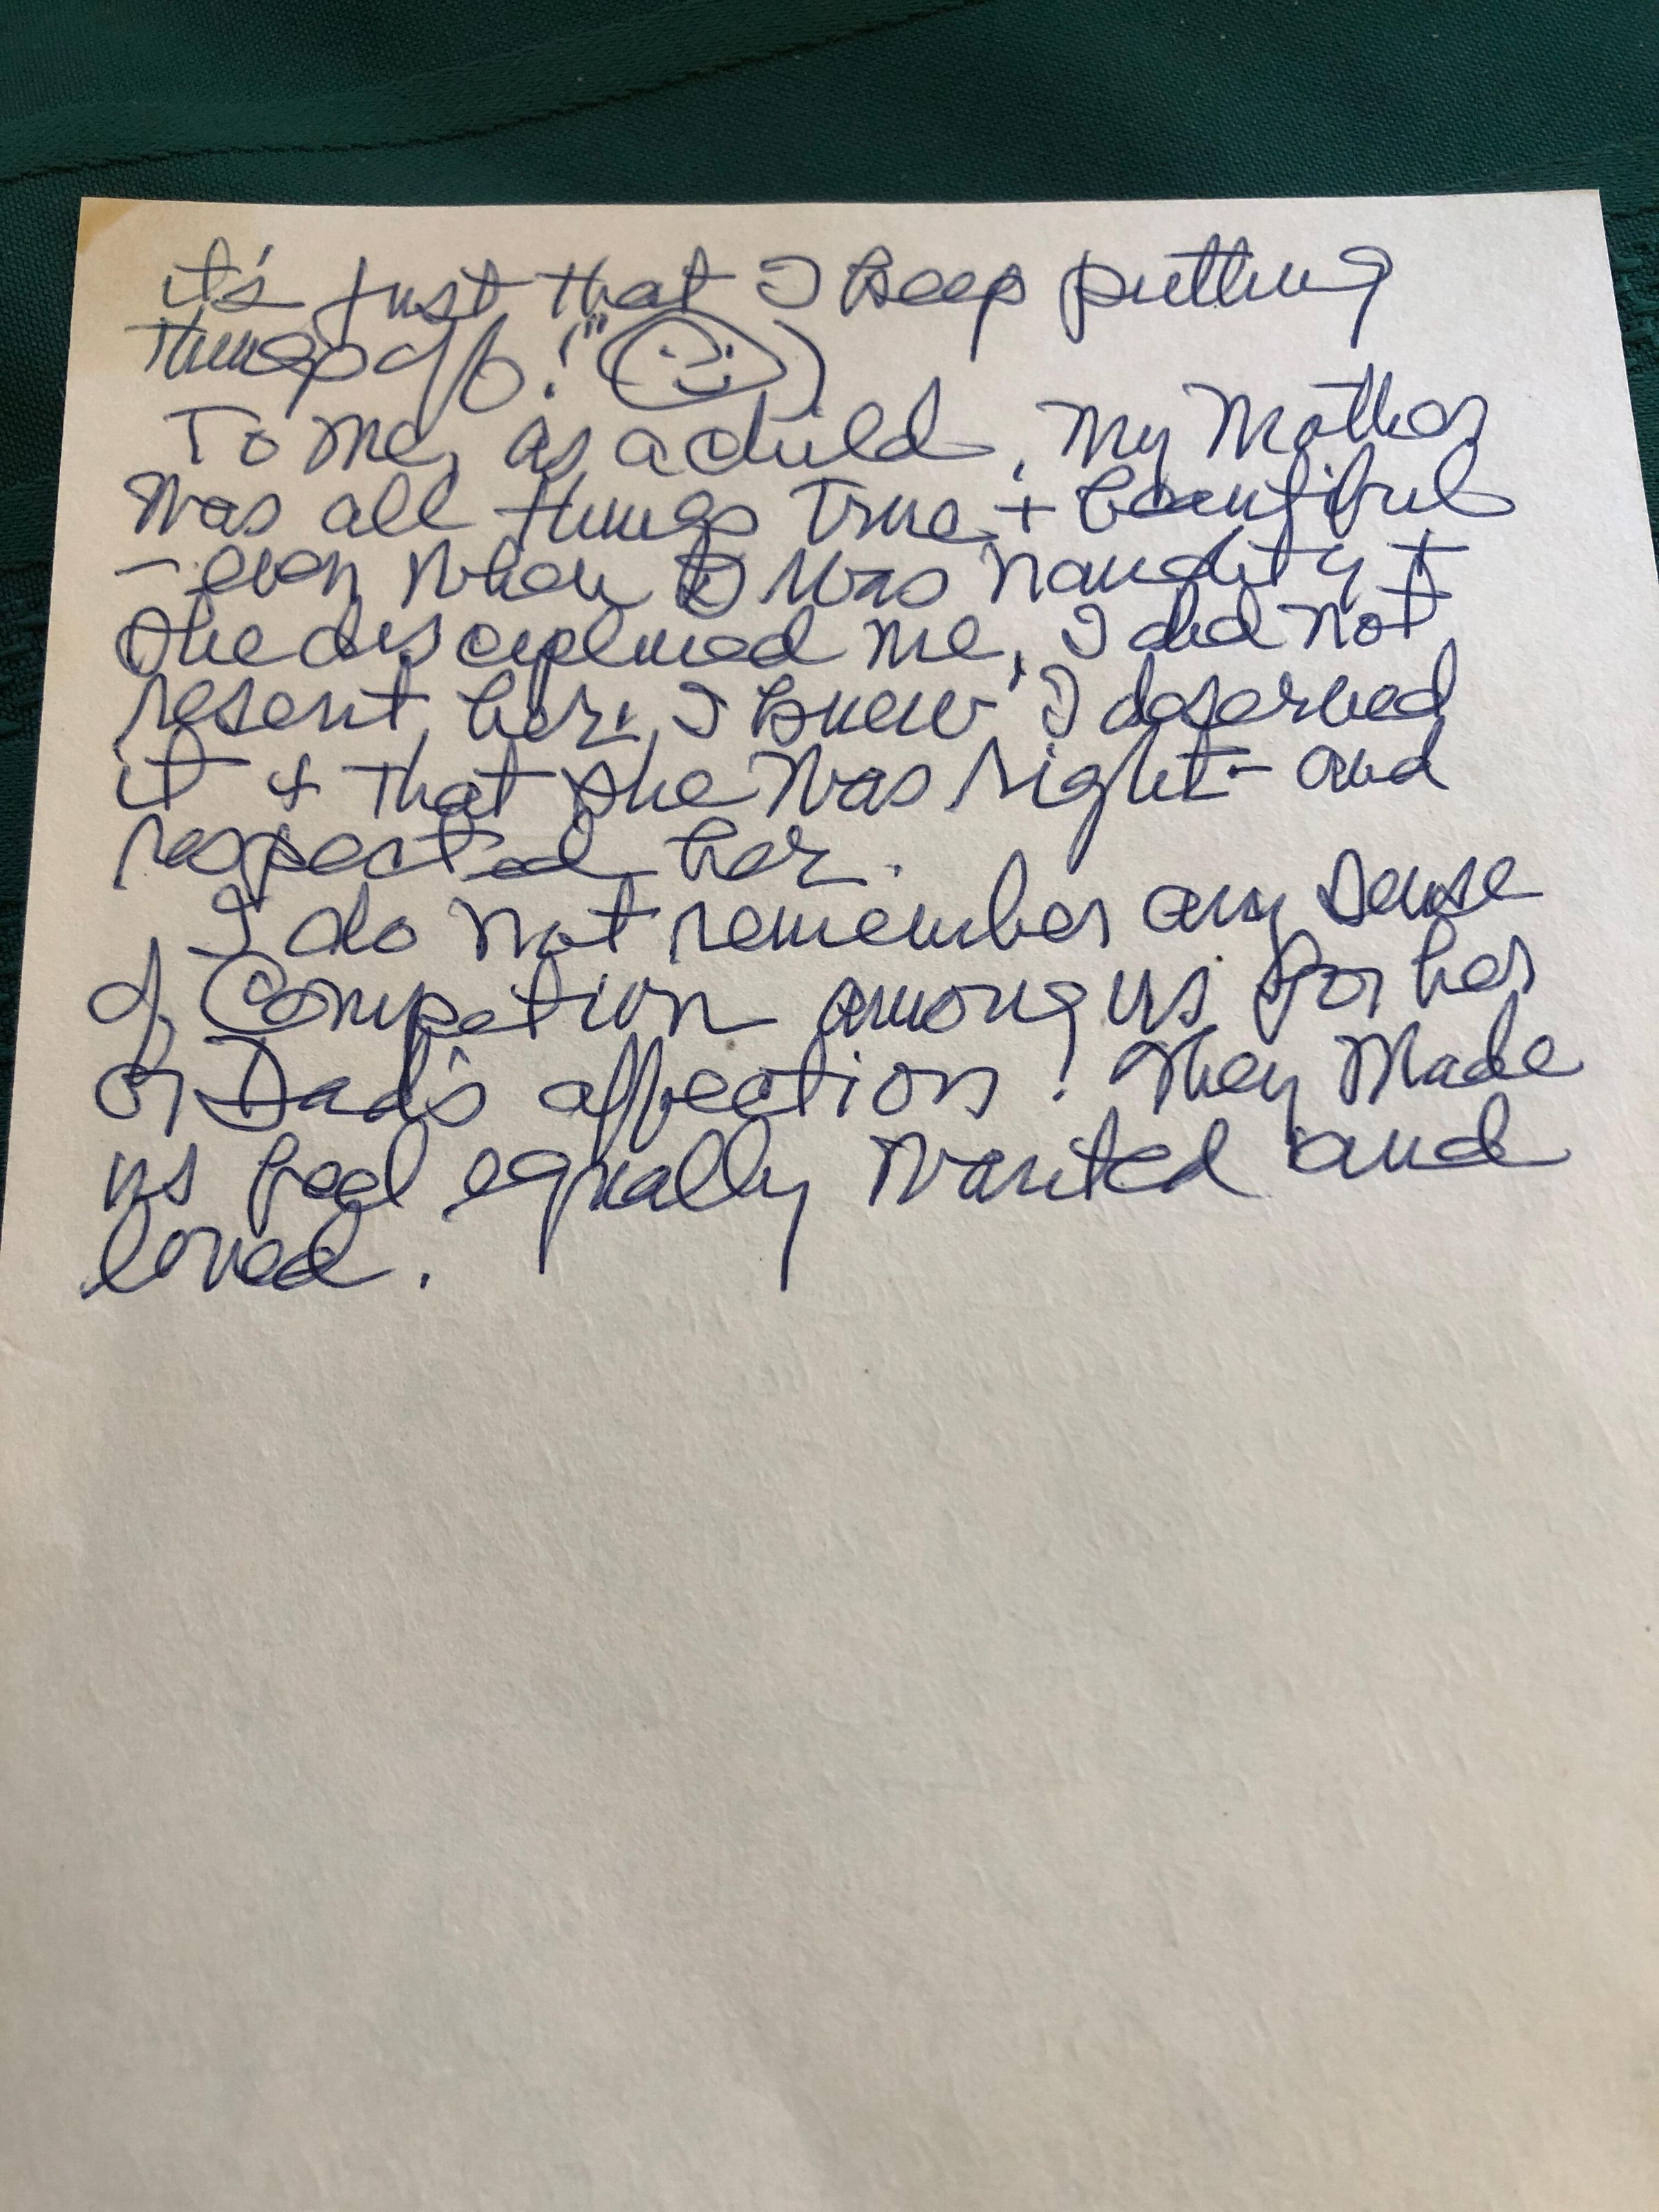 it's just that I keep putting
things off!" )
To me, as a child, my Mother
was all things true + beautiful
- even when I was naughty +
she disciplined me, I did not
resent her. I knew I deserved
it + that she was right - and
respected her.
I do not remember any sense
of Competion among us for her
or Dad's affection! They made
us feel equally wanted and
loved.